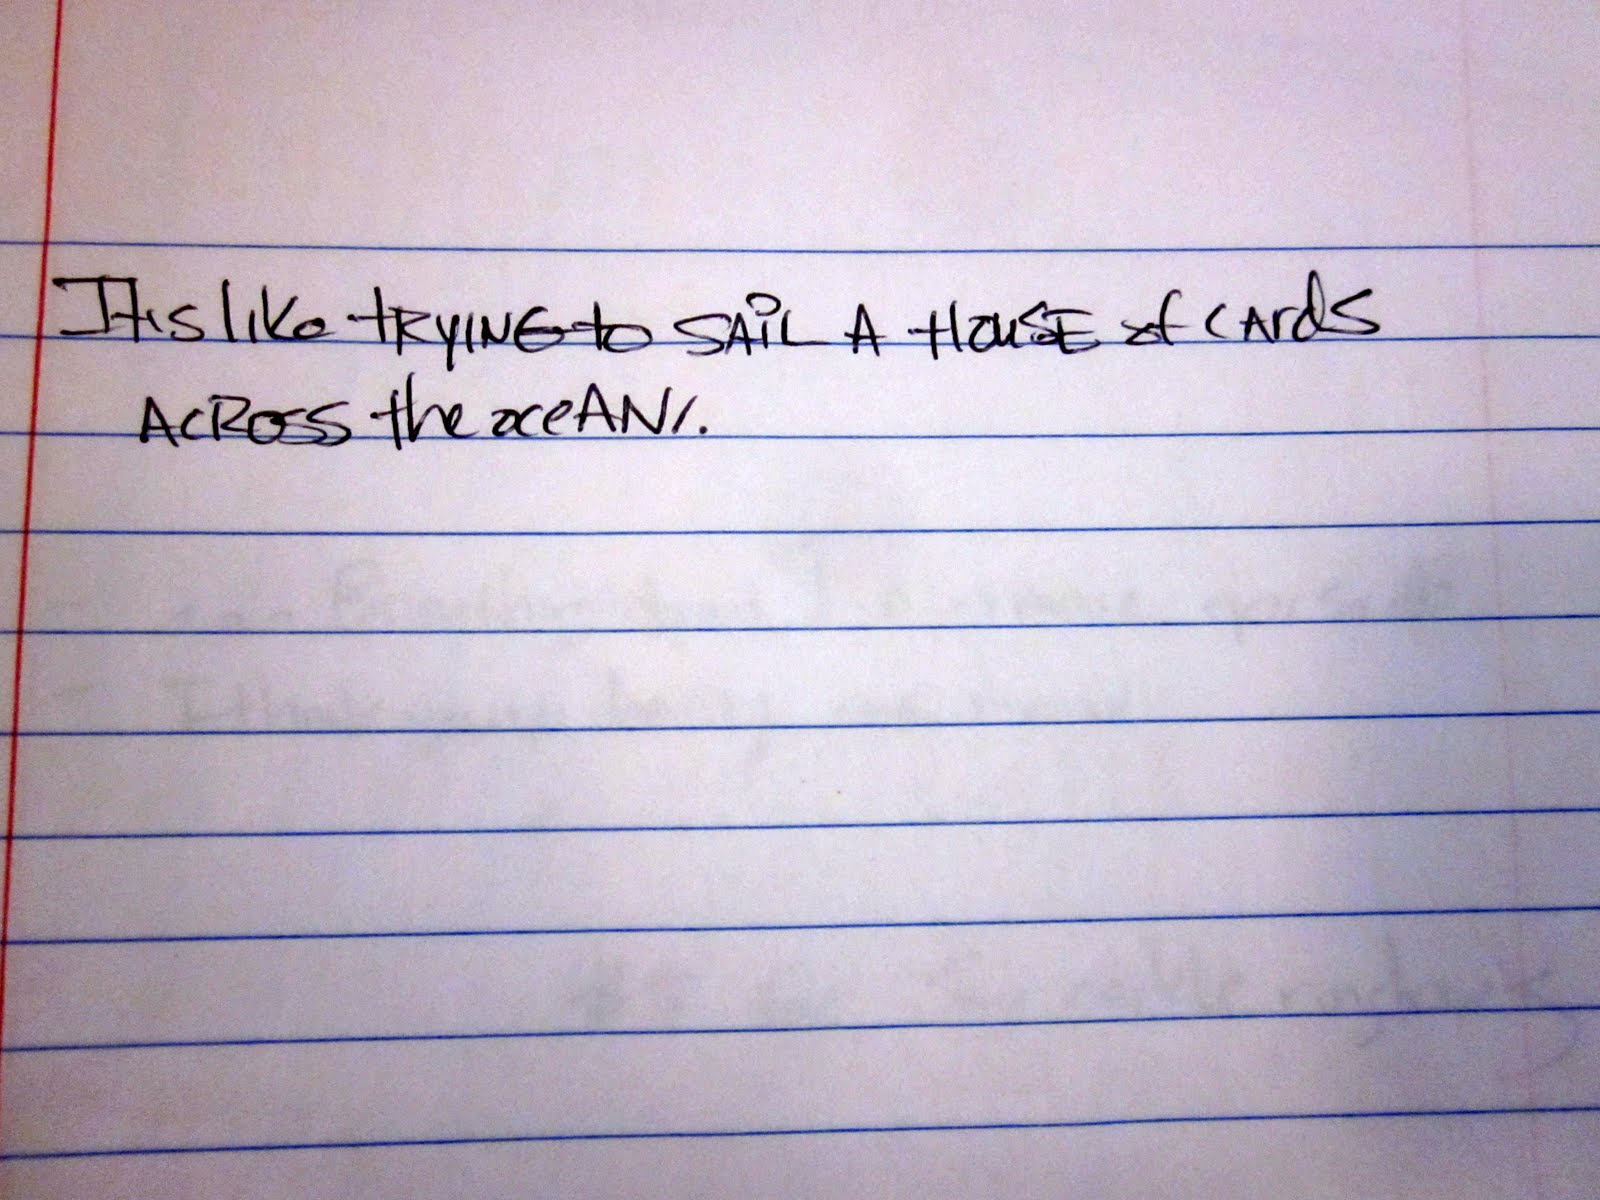 It is like tRYING to SAiL A HOUSE of CArdS
ACROSS the oceAN.